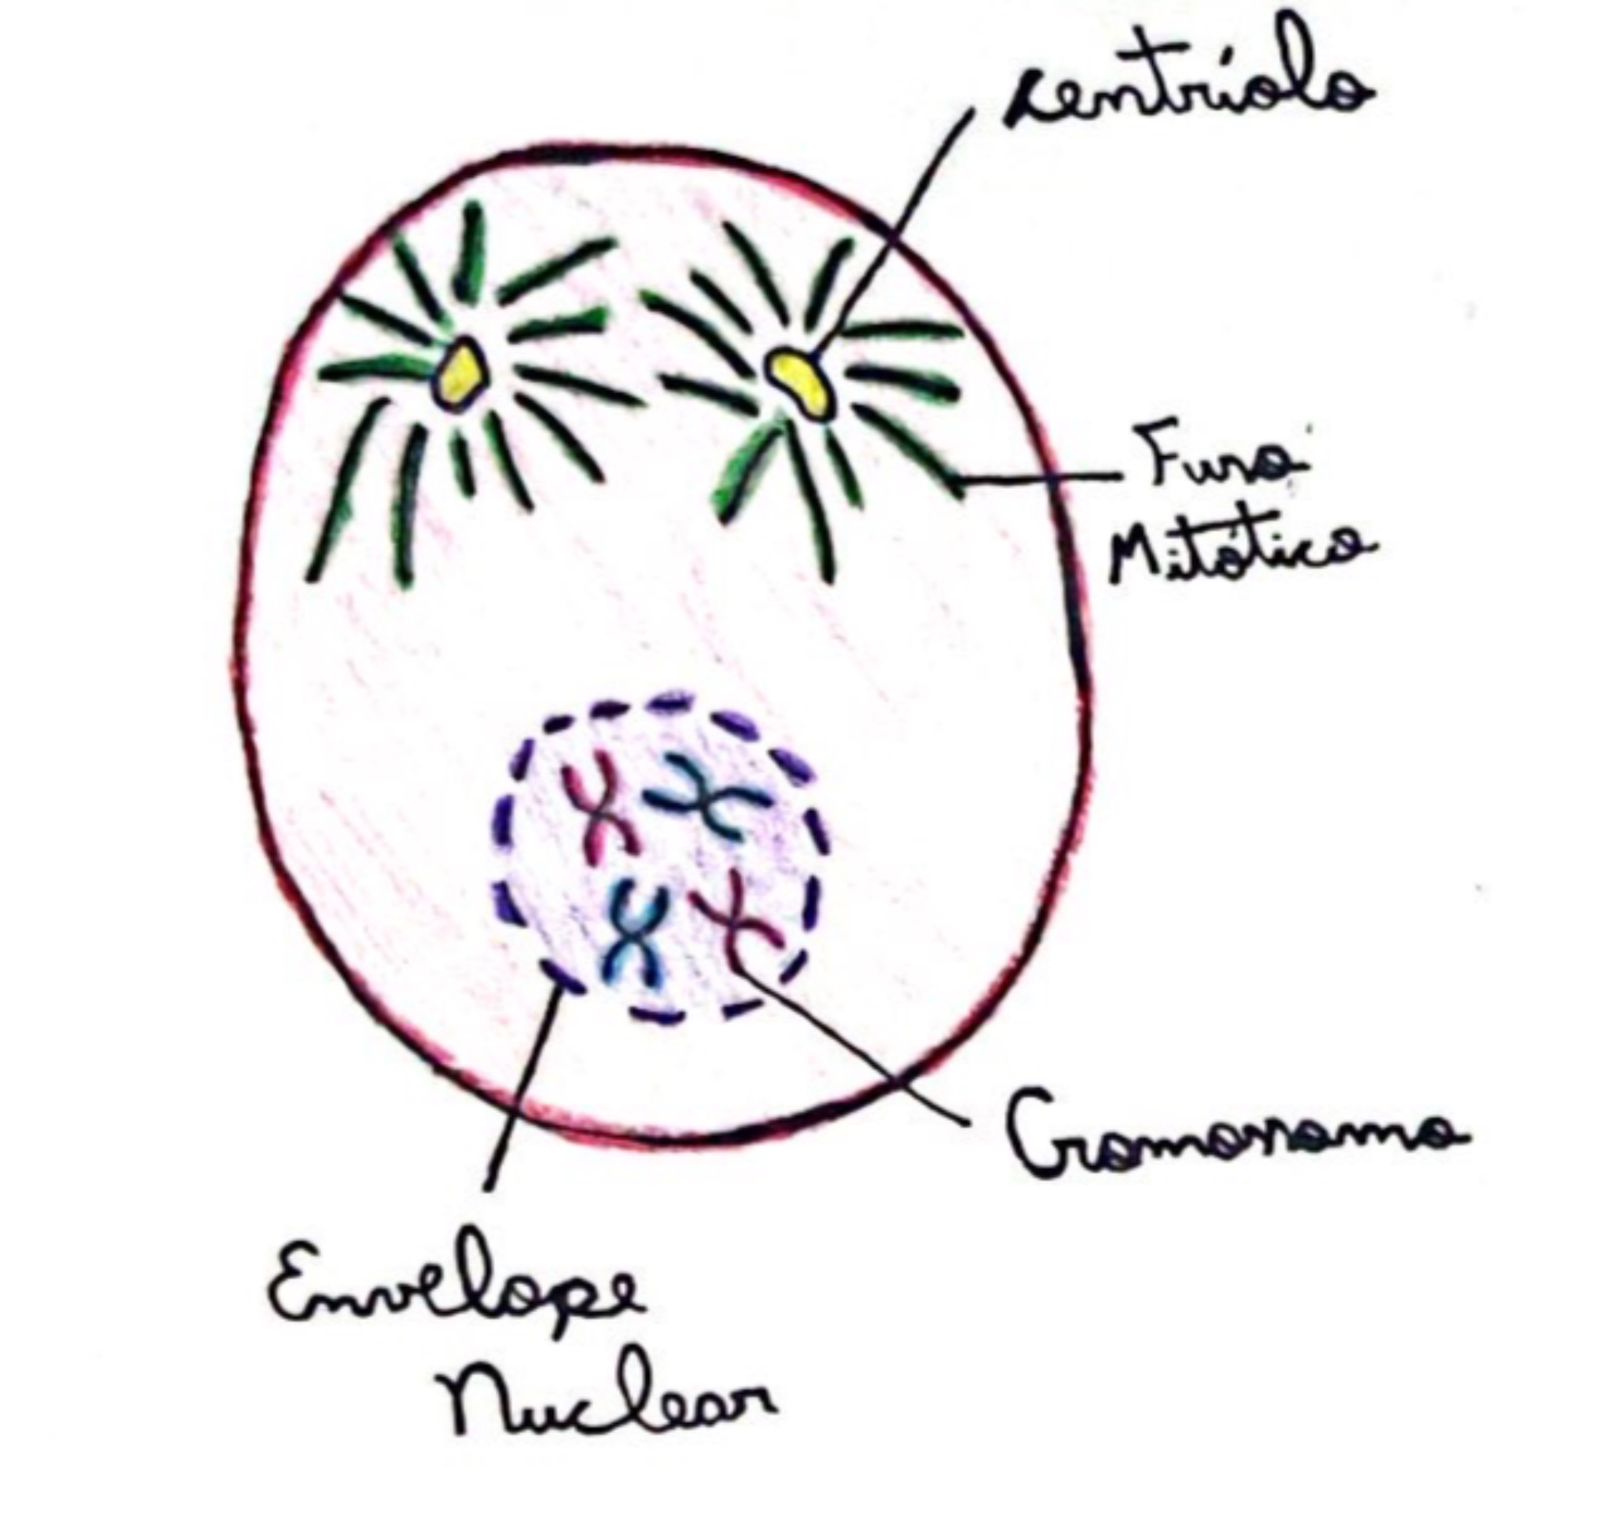 Centríolo
Fuso
Mitótico
Cromossomo
Envelope
Nuclear